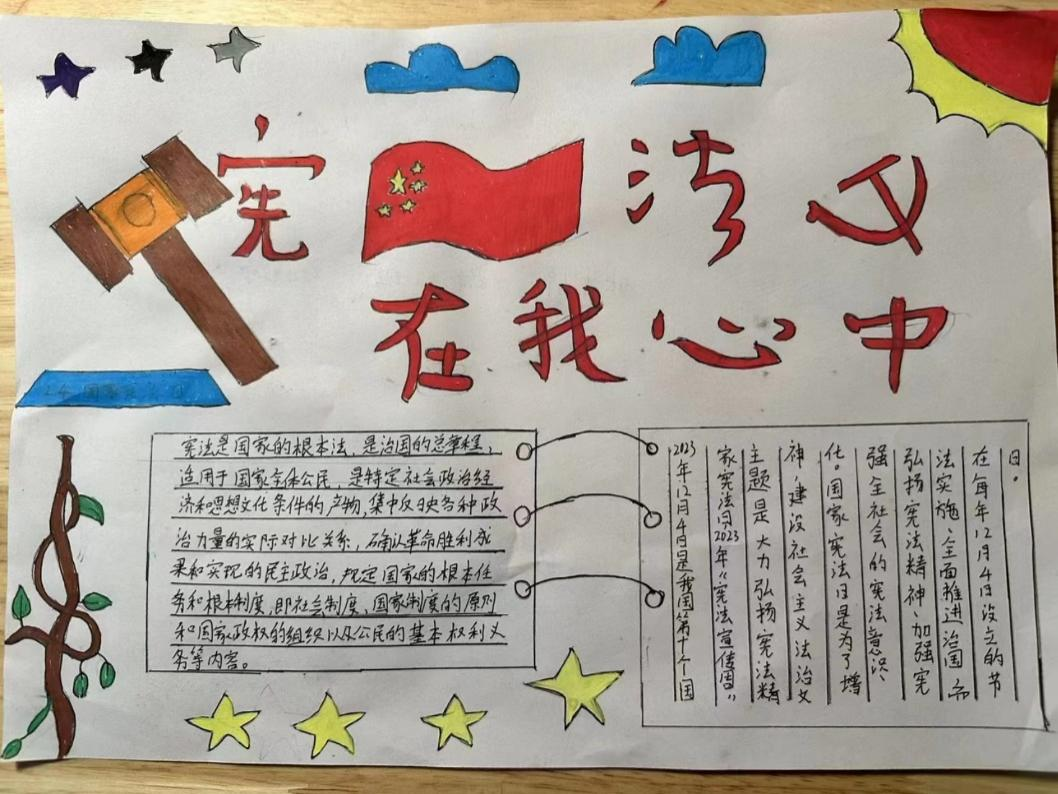 宪法
在我心中
国家
日
宪法是国家的根本法，是治国的总章程，
适用于国家全体公民，是特定社会政治经
济和思想文化条件的产物，集中反映各种政
治力量的实际对比关系，确认革命胜利成
果和实现的民主政治，规定国家的根本任
务和根本制度，即社会制度、国家制度的原则
和国家政权的组织以及公民的基本权利义
务等内容。
2023年12月4日是我国第十个国
家宪法日2023年《宪法宣传周》
主题是大力弘扬宪法精
神，建设社会主义法治文
化。国家宪法日是为了增
强全社会的宪法意识、
弘扬宪法精神、加强宪
法实施、全面推进治国
在每年12月4日设立的节
日。